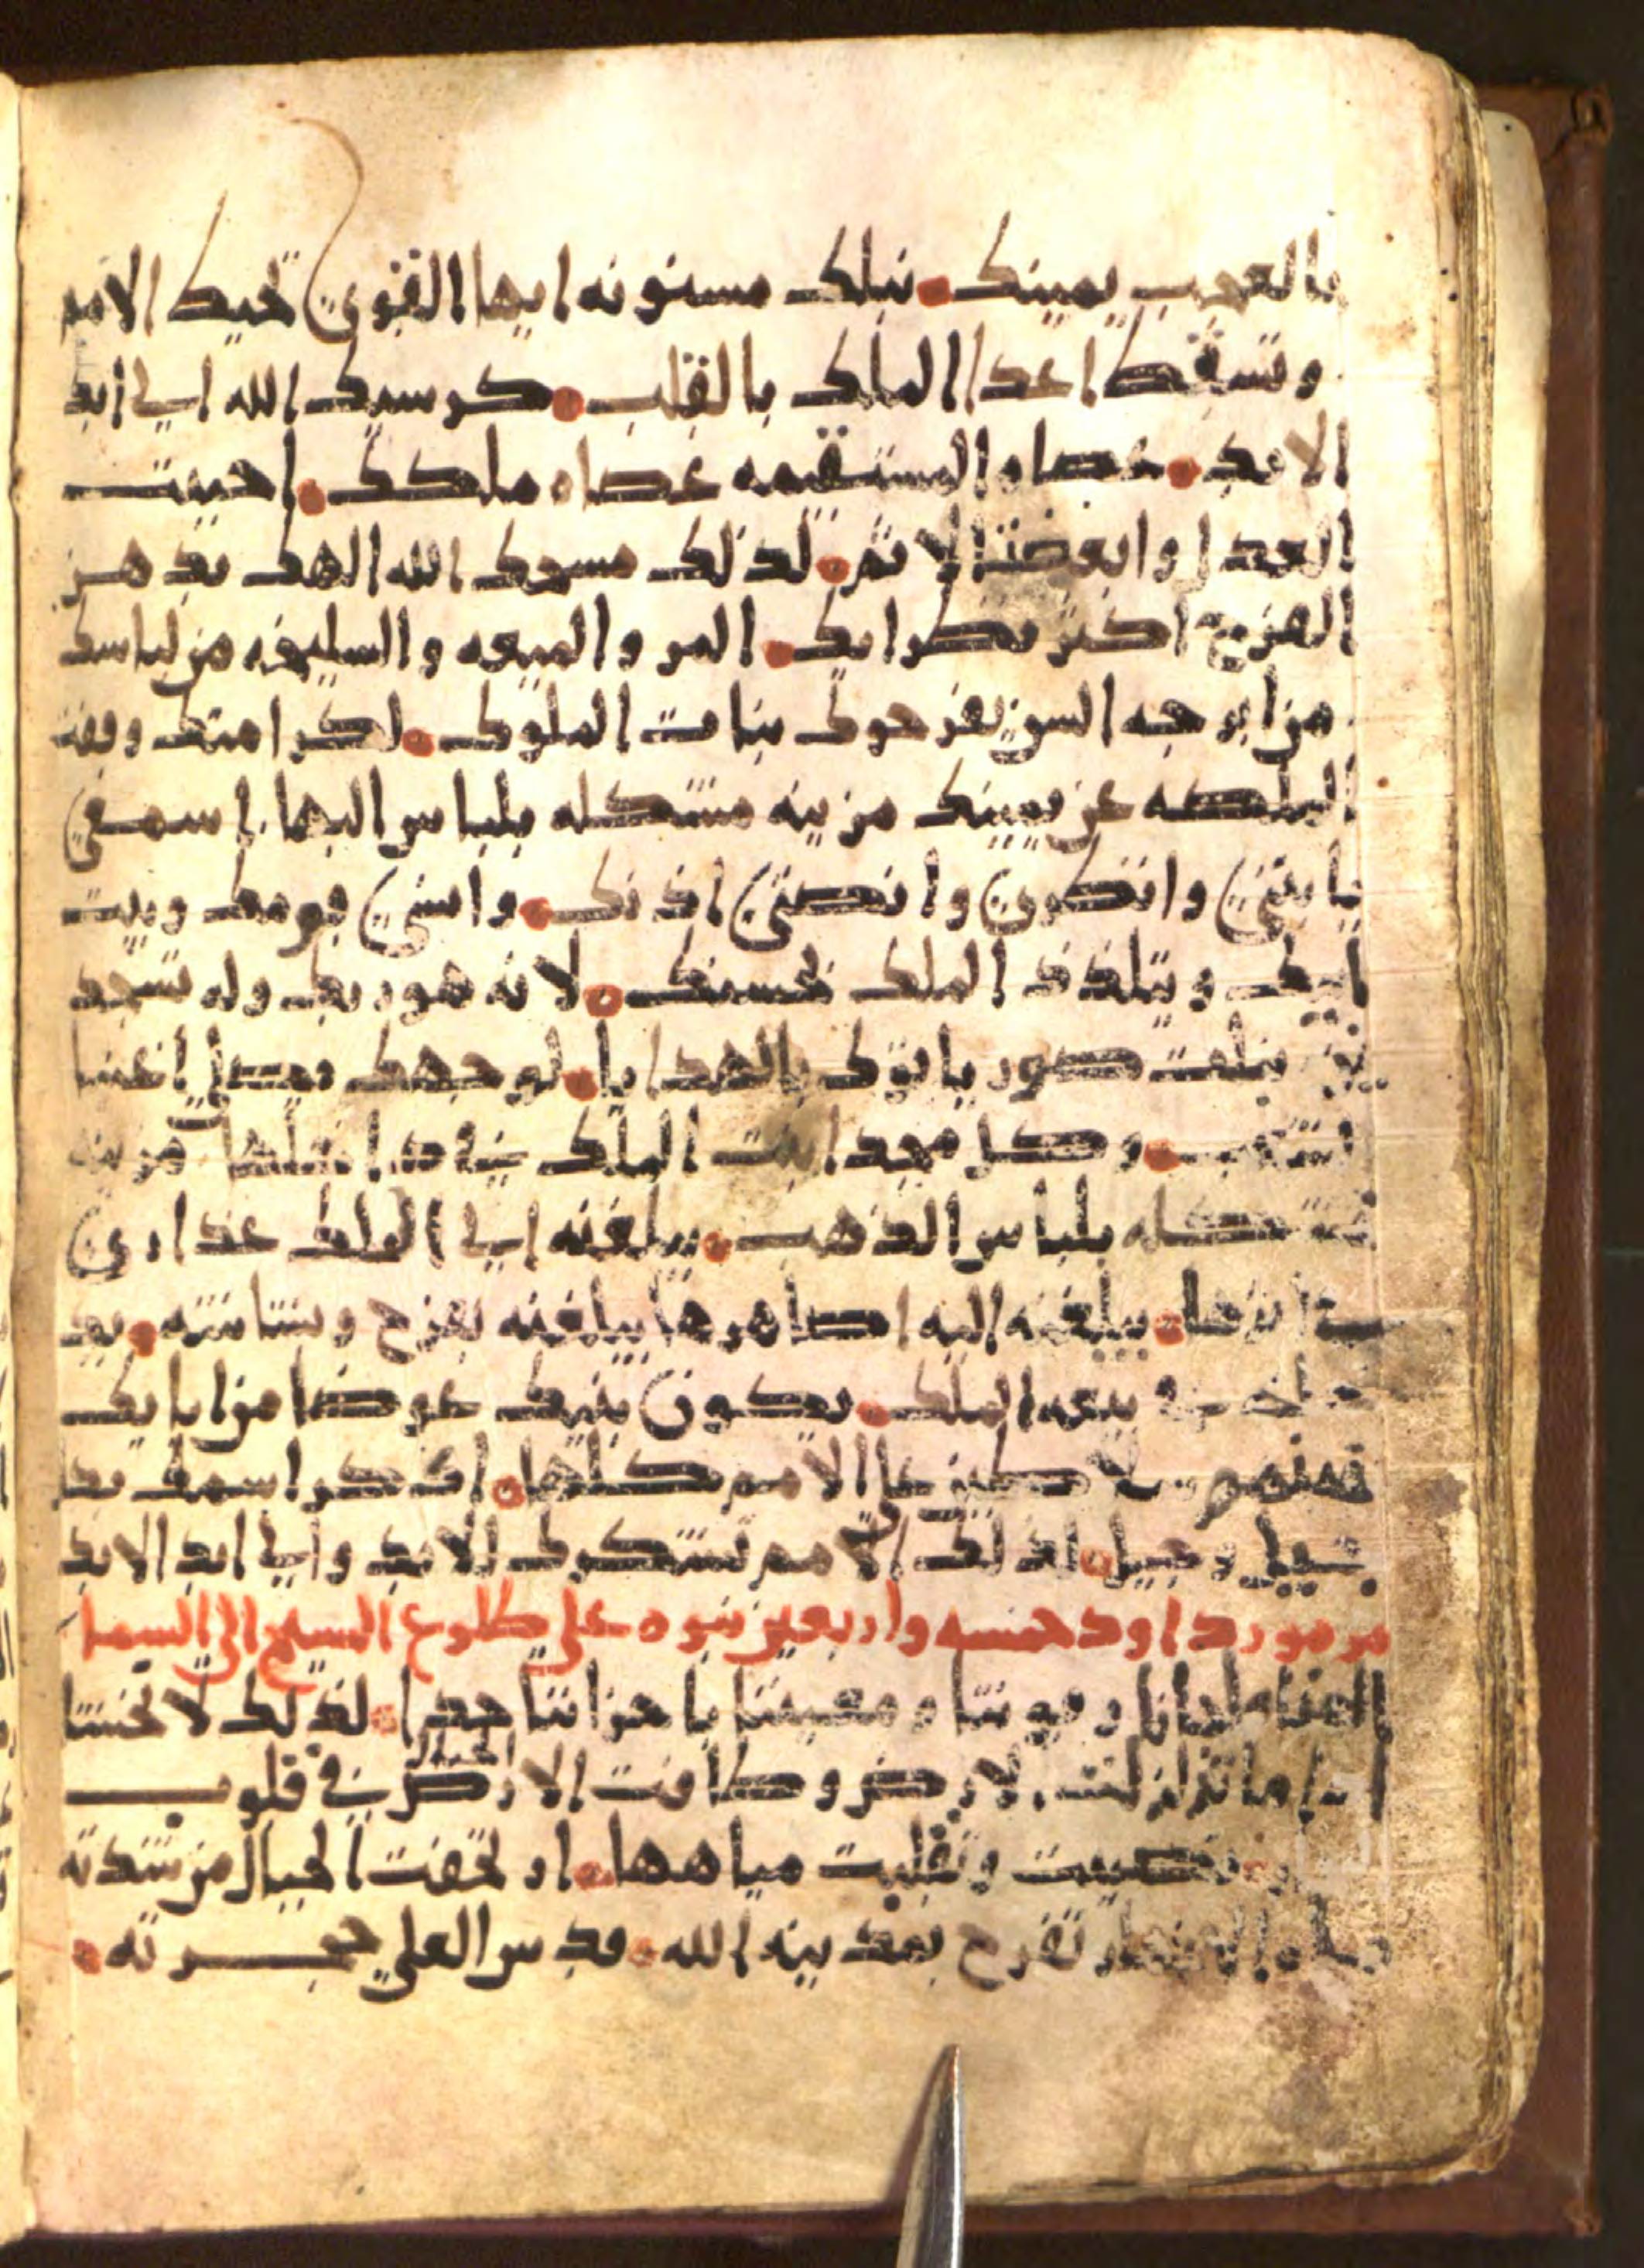 بالعجب يمينك • نبلك مسنونه ايها القوي تحيك الامم
وتسقط اعدا الملك بالقلب • كرسيك الله الي ابد
الابد • عصاه المستقيمه عصاه ملكك • احببت
العدل وابغضت الاثم • لذلك مسحك الله الهك بدهن
الفرح اكثر نظرايك • المر والميعه والسليخه من لباسك
من ابرجه السن يفرحوك بنات الملوك • لكرامتك وقفت
الملكه عن يمينك مزينه مشتكله بلباس البها • اسمعي
يابنتي وانظري وانصتي اذنك • وانسي قومك وبيت
ابيك ويتلذذ الملك بحسنك • لانه هو ربك وله تسجد
بنات صور ياتوك بالهدايا • لوجهك اغنيا
الشعب • وكل مجد ابنت الملك مزينه
مشتكله بلباس الذهب • يبلغنه الي الملك عذاري
اثرها • يبلغنه اليه اصاهرها يبلغنه بفرح وبشاشه •
بيعه الملك • يكون بنيك عوضا من ابايك
سلاطين علي الامم كلها • اذكر اسمك
جيل وجيل • لذلك الامم تشكرك للابد والي ابد الابد
مزمور داود خمسه واربعين نبوه علي طلوع المسيح الي السما
الهنا ملجانا وقوتنا ومعيننا باحزاننا جدا • لذلك لا تخشا
اذا ما تزلزلت الارض وكافت الجبال الارض في قلوب
وتقلبت مياهها • ارتجفت الجبال من شدته
الانهار تفرح بمدينه الله • قدس العلي حجرته •